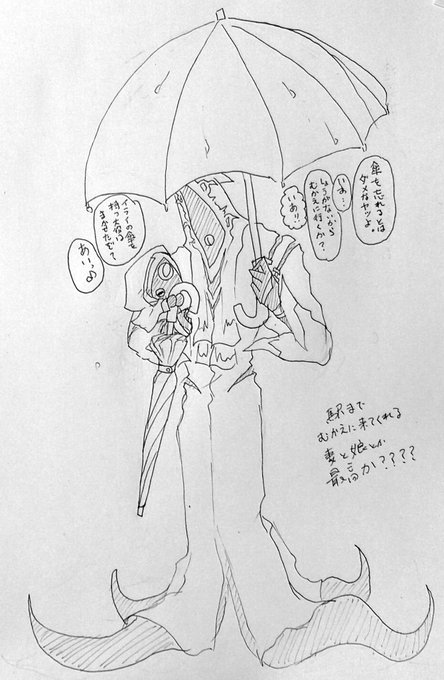 傘を忘れるとは
ダメなヤツよ。
いあ…
しょうがないから
むかえに行くか？
いあ!!
イライの傘を
持つ大役は
まかせたぞ？
あいっ♪
駅まで
むかえに来てくれる
妻と娘とか
最高か????